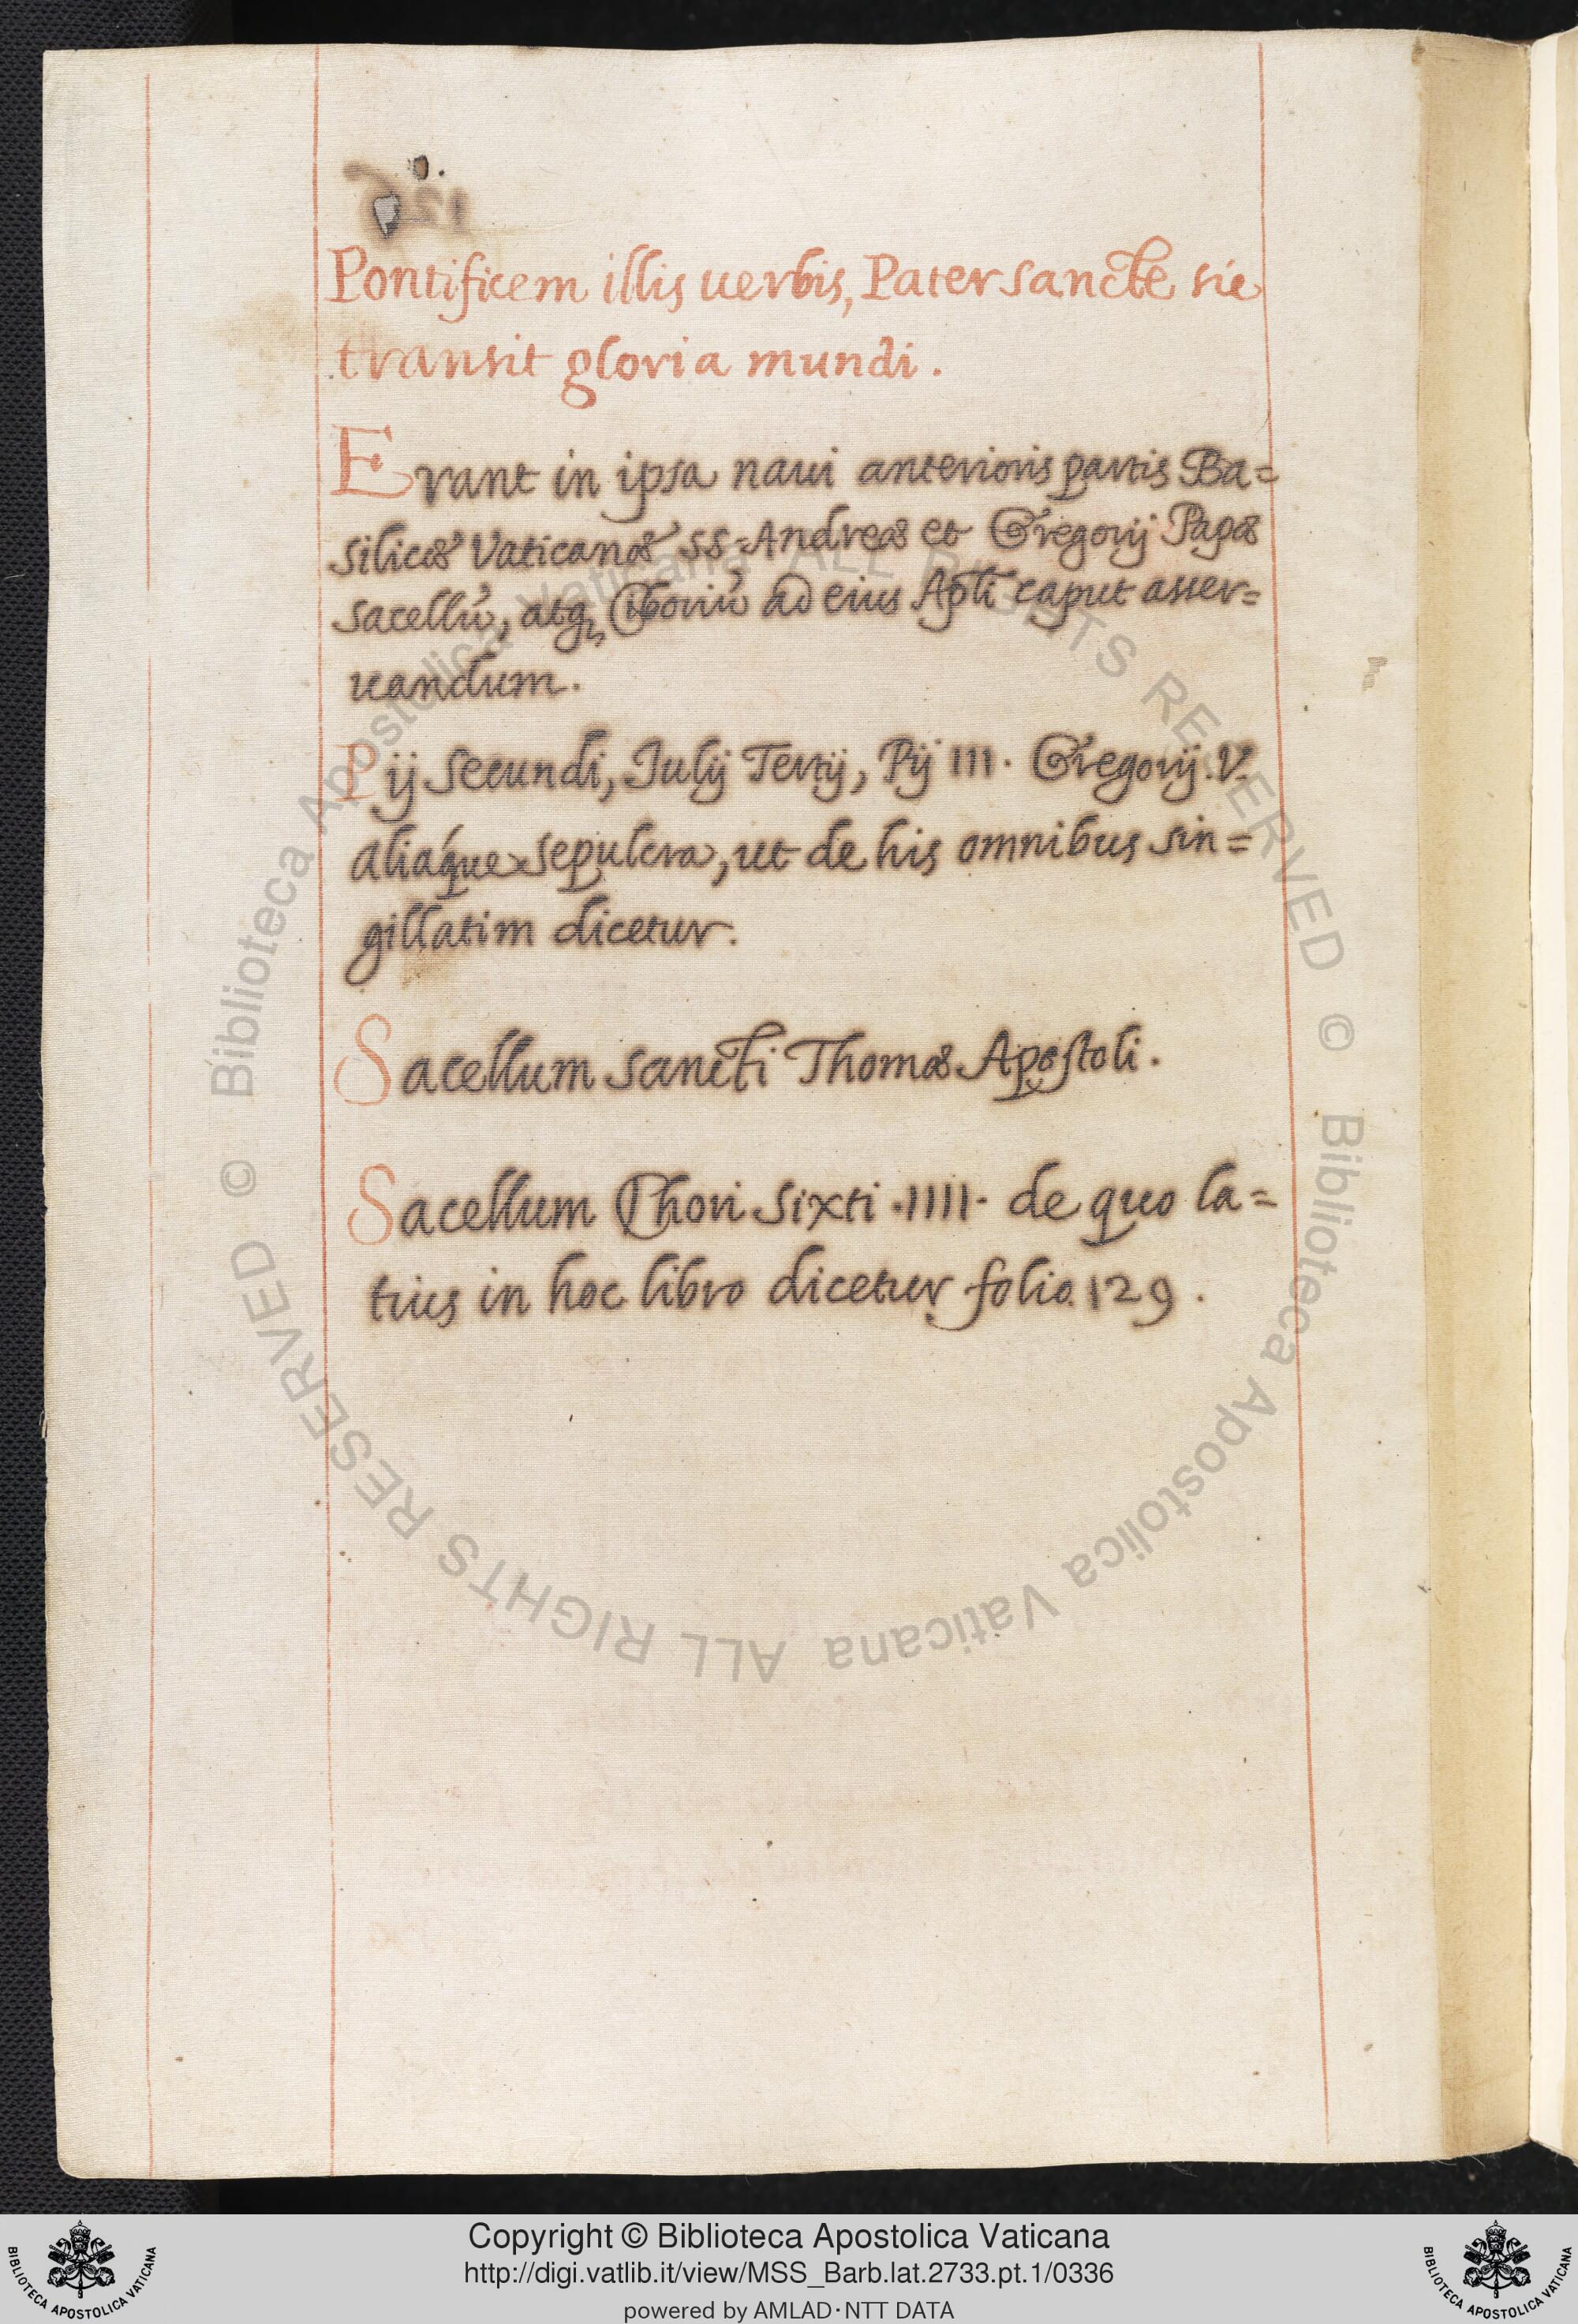 Pontificem illis uerbis, Pater sancte sic
transit gloria mundi.
Erant in ipsa naui anterioris partis Ba=
silicæ Vaticanæ SS. Andreæ et Gregorij Papæ
sacellũ, atq; Ciboriũ ad eius Apli caput asser=
uandum.
Pij Secundi, Iulij Tertij, Pij III. Gregorij .V.
aliáque sepulcra, ut de his omnibus sin=
gillatim dicetur.
Sacellum sancti Thomæ Apostoli.
Sacellum Chori Sixti .IIII. de quo la=
tius in hoc libro dicetur folio 129.
© Biblioteca Apostolica Vaticana ALL RIGHTS RESERVED
© Biblioteca Apostolica Vaticana ALL RIGHTS RESERVED
Copyright © Biblioteca Apostolica Vaticana
http://digi.vatlib.it/view/MSS_Barb.lat.2733.pt.1/0336
powered by AMLAD·NTT DATA
BIBLIOTECA APOSTOLICA VATICANA
BIBLIOTECA APOSTOLICA VATICANA